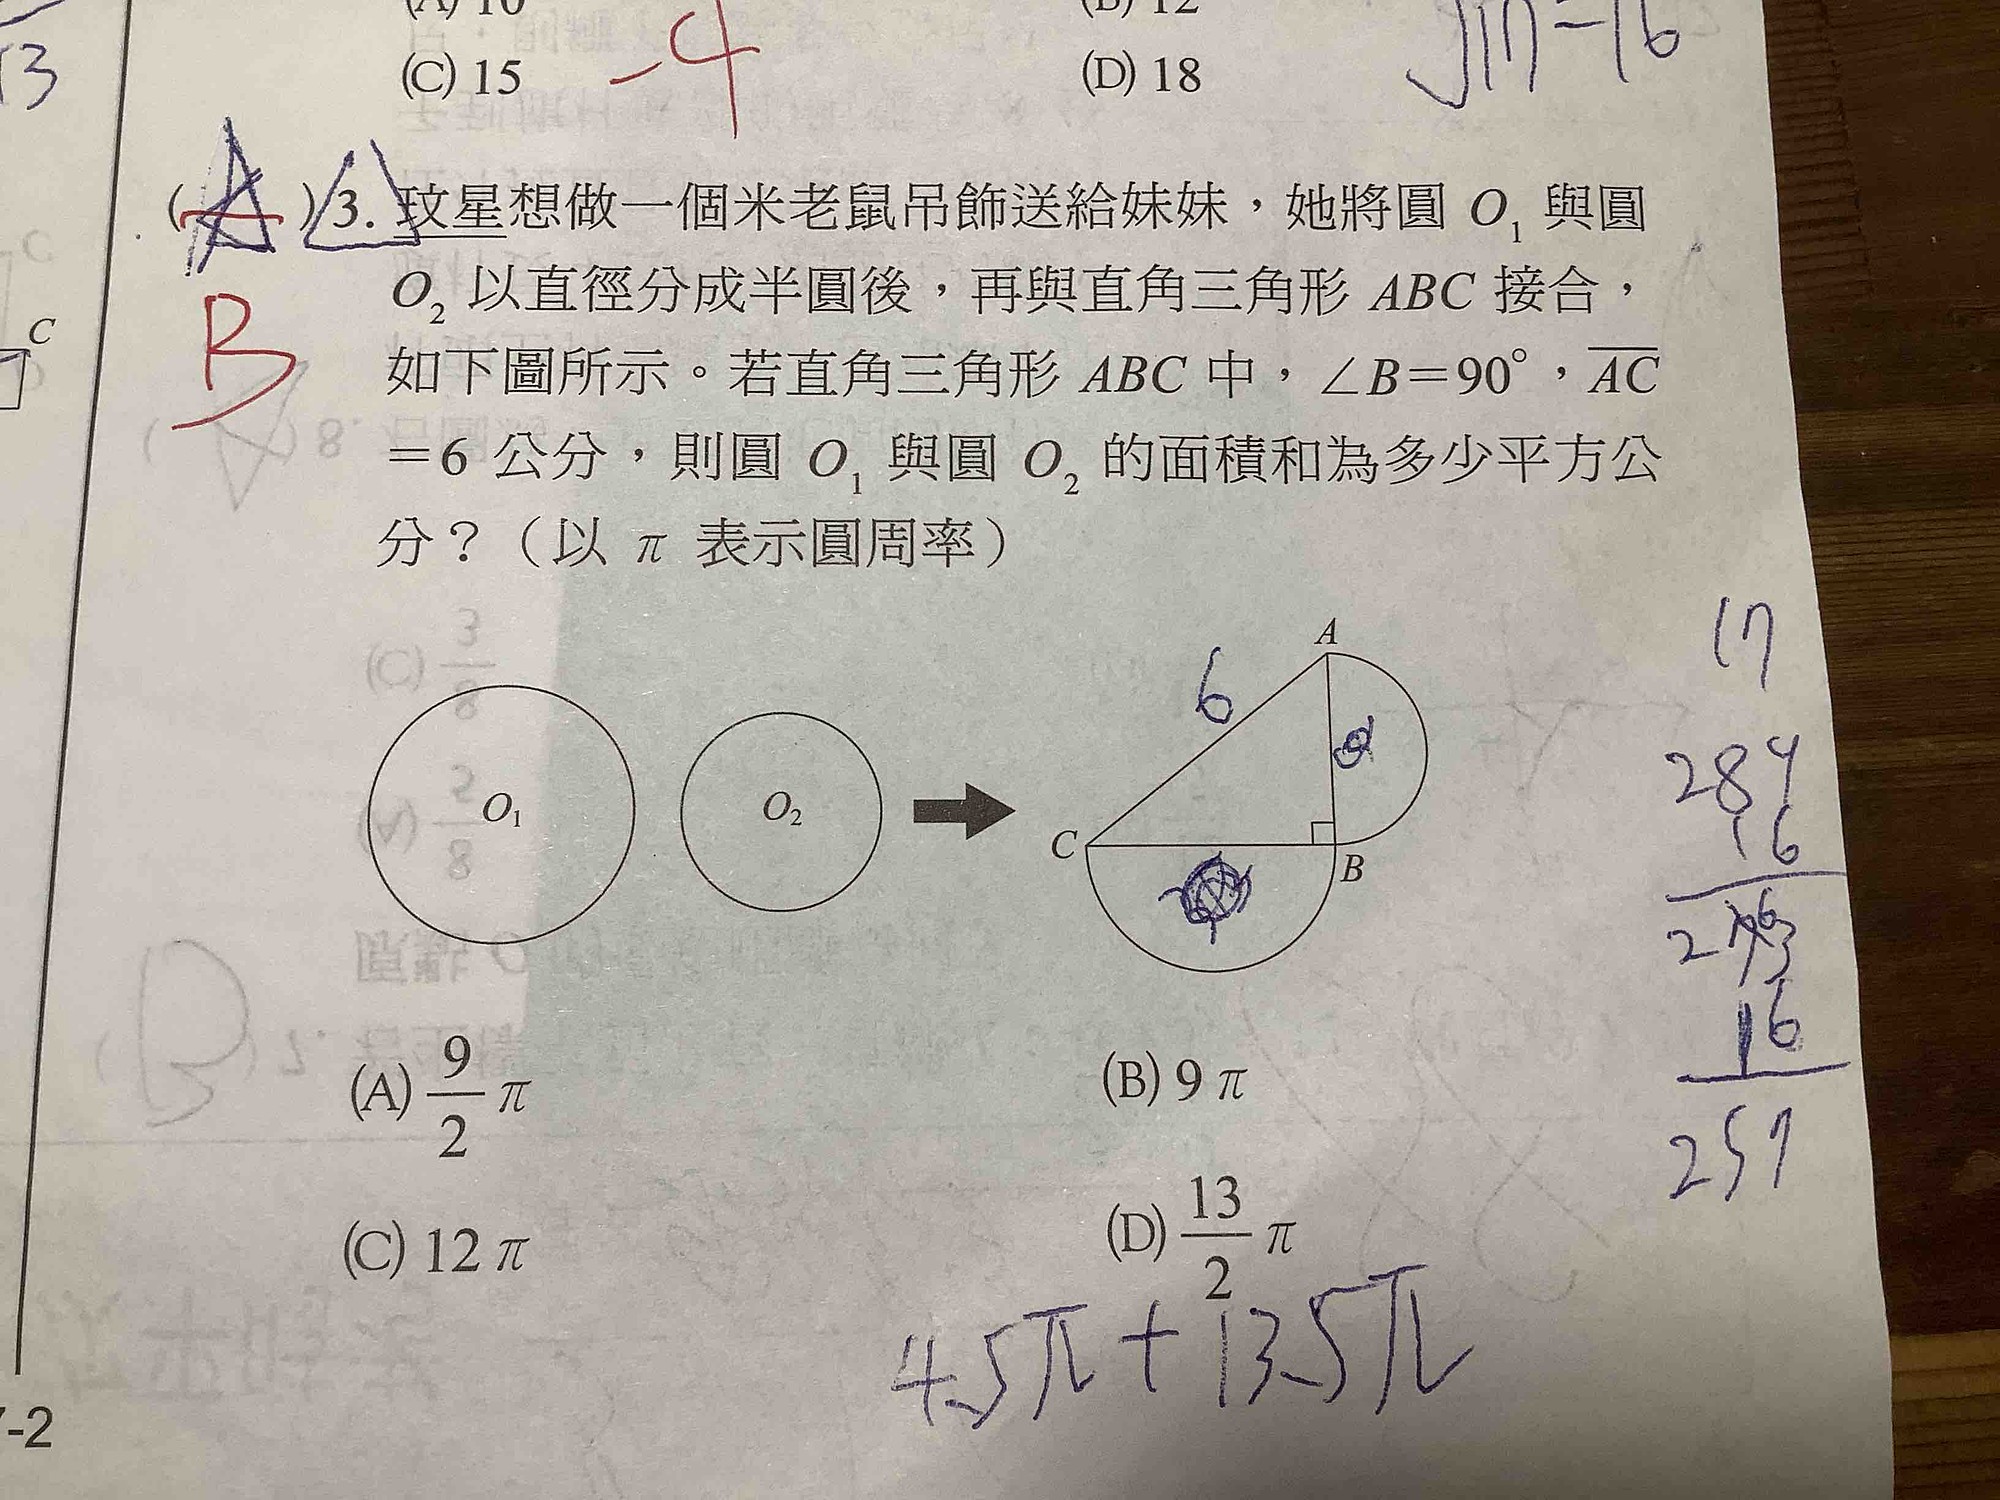 (A) 10 (B) 12
(C) 15 -4 (D) 18
13
√17 = 16
C
(A) 3. 玟星想做一個米老鼠吊飾送給妹妹，她將圓 O₁ 與圓
B
O₂ 以直徑分成半圓後，再與直角三角形 ABC 接合，
如下圖所示。若直角三角形 ABC 中，∠B＝90°，A̅C̅
＝6 公分，則圓 O₁ 與圓 O₂ 的面積和為多少平方公
分？（以 π 表示圓周率）
O₁
O₂
A
6
C
B
17
284
16
16
257
(A) 9/2 π (B) 9 π
(C) 12 π (D) 13/2 π
4.5π + 13.5π
7-2